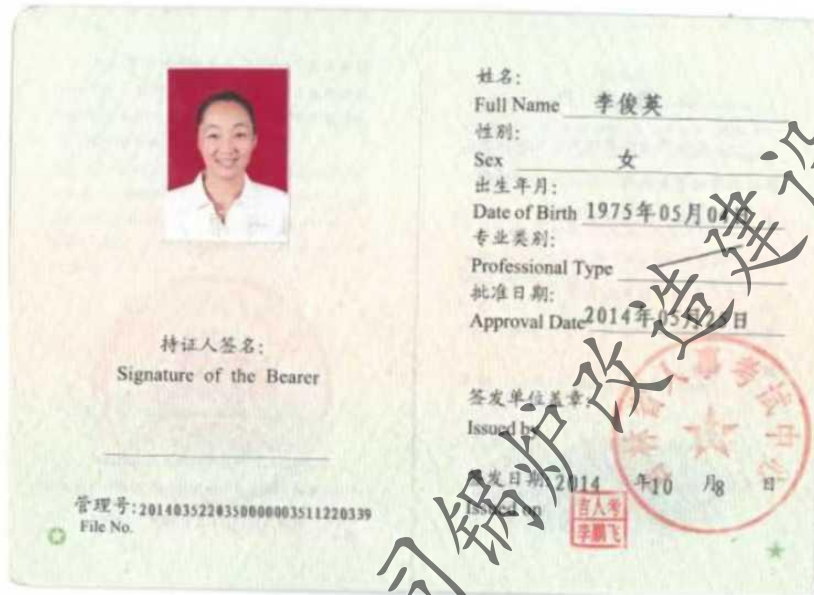 持证人签名:
Signature of the Bearer
管理号:2014035220350000003511220339
File No.
姓名:
Full Name 李俊英
性别:
Sex 女
出生年月:
Date of Birth 1975年05月04日
专业类别:
Professional Type
批准日期:
Approval Date 2014年05月25日
签发单位盖章:
Issued by
签发日期: 2014 年10 月8 日
Issued on
吉林省人事考试中心
吉人考
李鹏飞
司锅炉改造建设